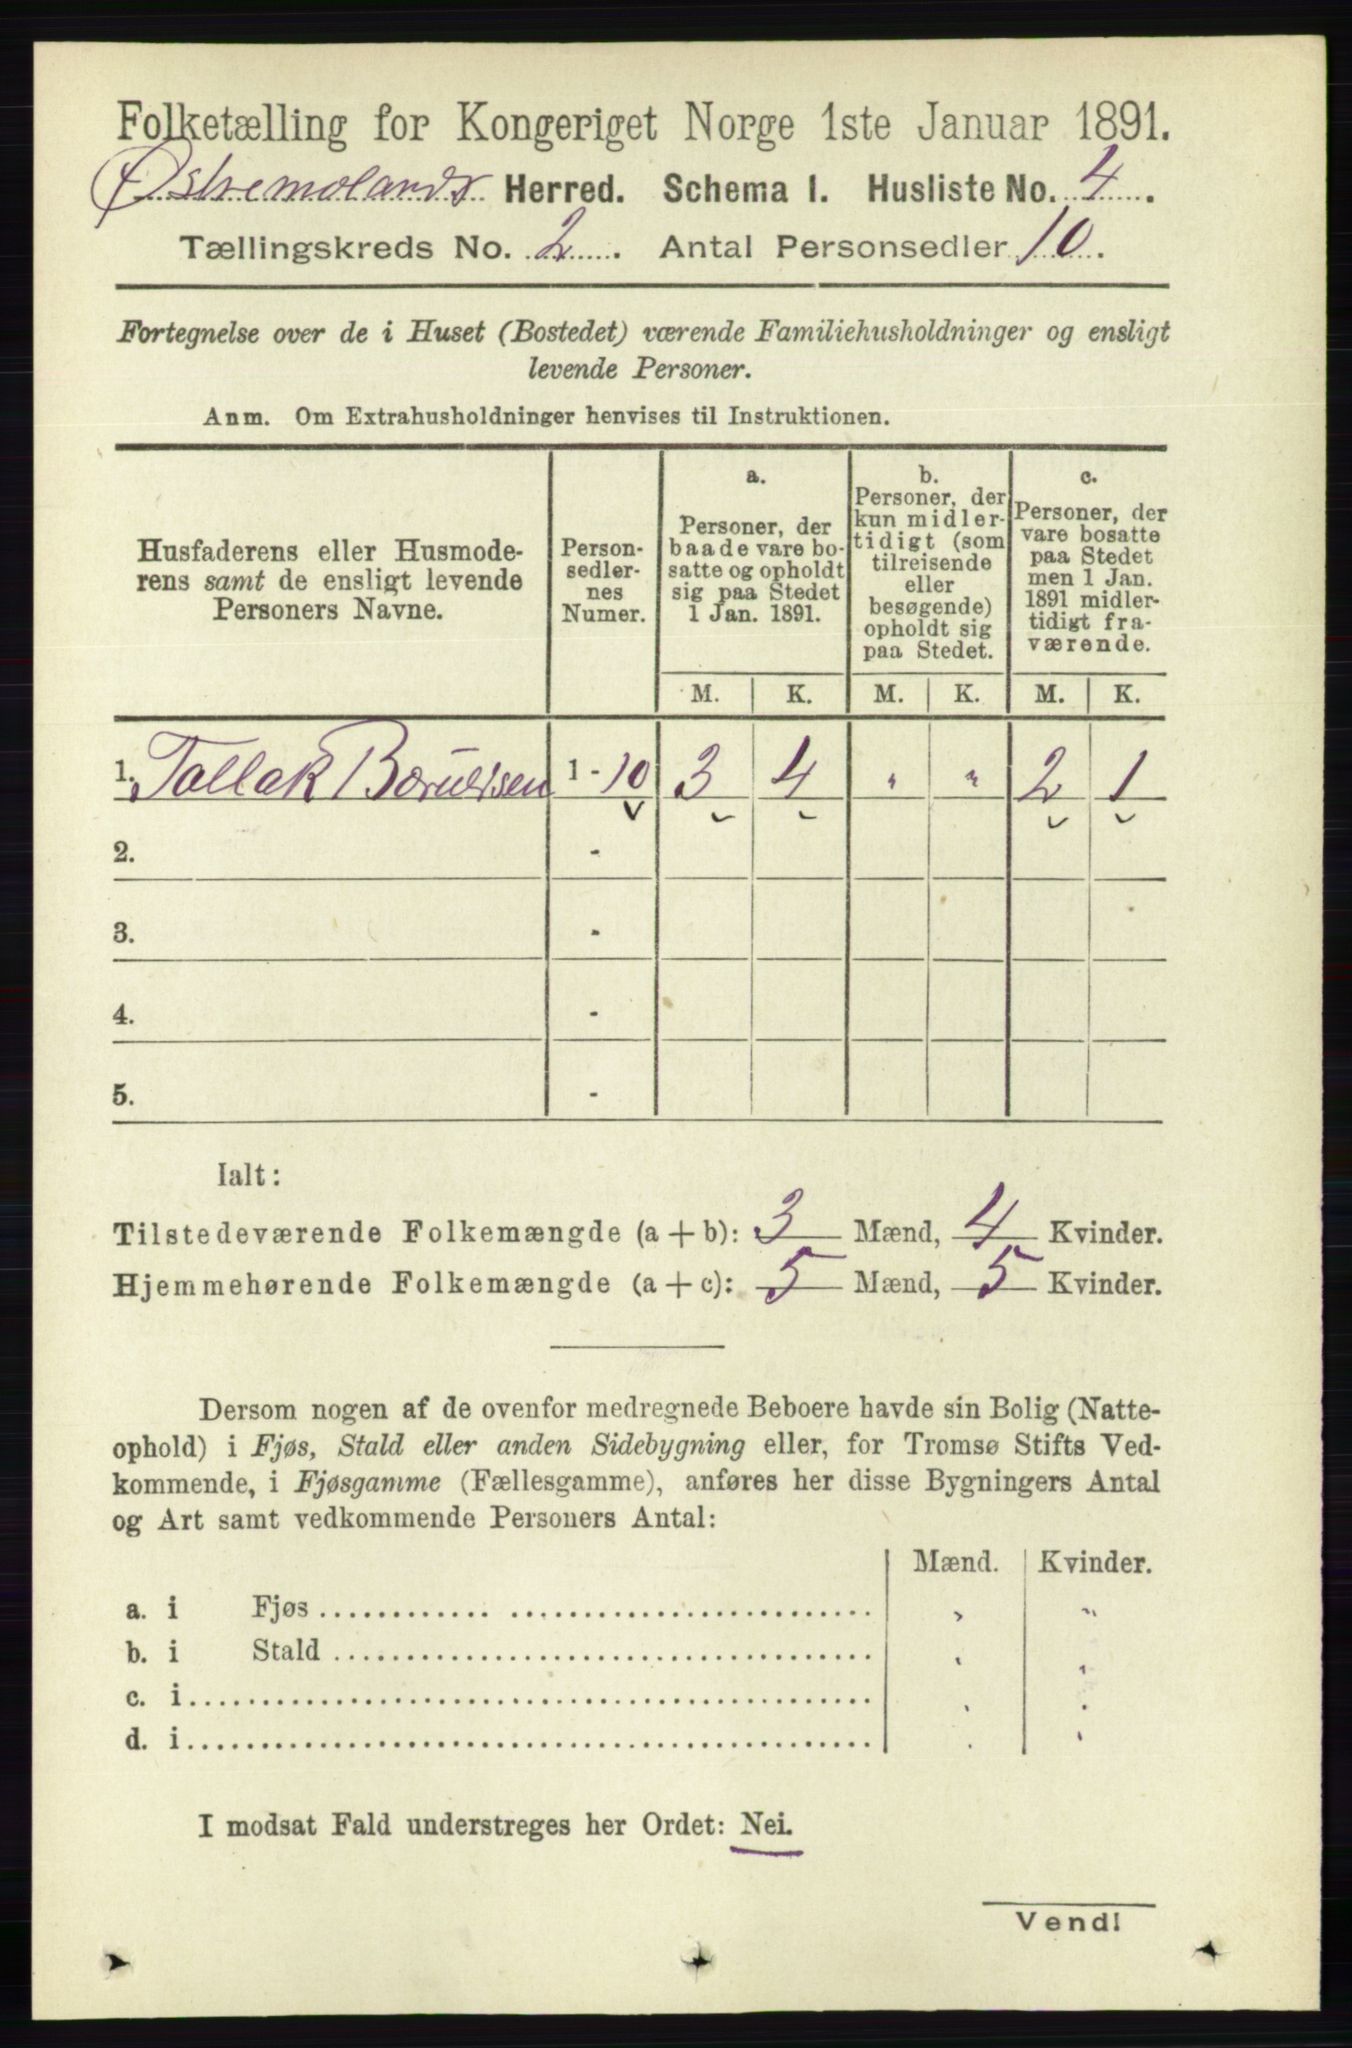 Folketælling for Kongeriget Norge 1ste Januar 1891.
Østremolands Herred. Schema I. Husliste No. 4.
Tællingskreds No. 2. Antal Personsedler 10.
Fortegnelse over de i Huset (Bostedet) værende Familiehusholdninger og ensligt
levende Personer.
Anm. Om Extrahusholdninger henvises til Instruktionen.
Husfaderens eller Husmode-
rens samt de ensligt levende
Personers Navne.
Person-
sedler-
nes
Numer.
a.
Personer, der
baade vare bo-
satte og opholdt
sig paa Stedet
1 Jan. 1891.
b.
Personer, der
kun midler-
tidigt (som
tilreisende
eller
besøgende)
opholdt sig
paa Stedet.
c.
Personer, der
vare bosatte
paa Stedet
men 1 Jan.
1891 midler-
tidigt fra-
værende.
M. K. M. K. M. K.
1. Tallak 1 - 10 3 4 " " 2 1
2. -
3. -
4. -
5. -
Ialt:
Tilstedeværende Folkemængde (a + b): 3 Mænd, 4 Kvinder.
Hjemmehørende Folkemængde (a + c): 5 Mænd, 5 Kvinder.
Dersom nogen af de ovenfor medregnede Beboere havde sin Bolig (Natte-
ophold) i Fjøs, Stald eller anden Sidebygning eller, for Tromsø Stifts Ved-
kommende, i Fjøsgamme (Fællesgamme), anføres her disse Bygningers Antal
og Art samt vedkommende Personers Antal:
Mænd. Kvinder.
a. i Fjøs " "
b. i Stald " "
c. i " "
d. i " "
I modsat Fald understreges her Ordet: Nei.
Vend!